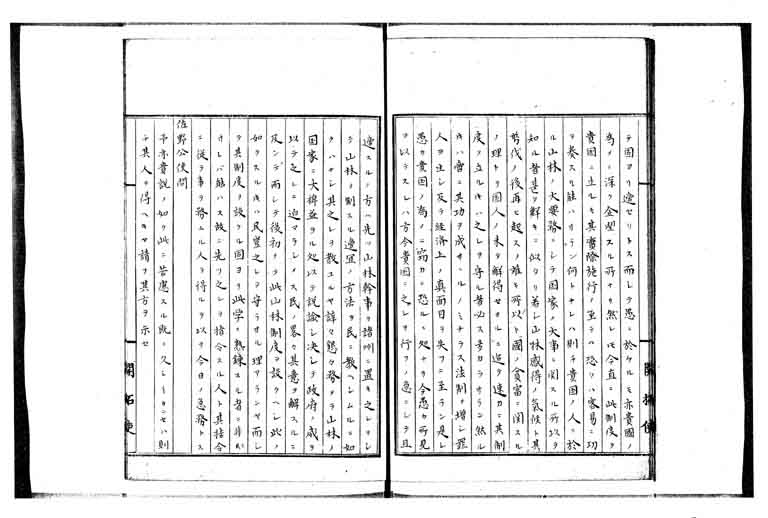 テ固ヨリ適セリトス而シテ愚ニ於ケルモ亦貴国ノ
為メニ深ク企望スル所ナリ然レ𪜈今直ニ此制度ヲ
貴国ニ土シ其實際施行ノ至テハ恐ラハ容易ニ功
ヲ奏スル能ハサラン何トナレハ則チ貴国ノ人ニ於
ル山林ノ大要務ニシテ国家ノ大事ニ関スル所以ヲ
知ル者甚タ鮮キニ似タリ若シ山林感得ノ気候ト其
斬伐ノ後再ヒ起スノ難キ所以ト国ノ貧富ニ関スル
ノ理トヲ国人ノ未タ解得セサルニ迫タ速カニ其制
度ヲ立ルキハ之レヲ守ル者必ス多カラサラン然ル
キハ啻ニ其功ヲ成サヽルノミナラス法則ヲ増シ罪
人ヲ生シ反テ経済上ノ真面目ヲ失フニ至ラン是レ
愚カ貴国ノ為メニ竊カニ恐ルヽ処ナリ今愚カ所見
ヲ以テスレハ方今貴国ニ之レヲ行フノ急ニシテ且
適スルノ方ハ先ツ山林幹事ヲ諸州ニ置キ之レヲシ
テ山林ノ制スル適宜ノ方法ヲ民ニ教ヘシムルニ如
クハナシ其之レヲ教ユルヤ諄々懇々務テ山林ノ
国家ニ大裨益アル処以テ説諭シ決シテ政府ノ威ヲ
以テ之レニ迫マラシメス民ノ畧々其意ヲ解スルニ
及ンデ而シテ後初メテ此山林制度ヲ設クヘシ此ノ
如クスルキハ民豈之レヲ守ラサルノ理アランヤ而シ
テ其制度ヲ設クル固ヨリ此学ニ熟練スル者ニ非
サレバ能ハス故ニ先ツ之レヲ指令スル人ト其指令
ニ従テ事ヲ務ユル人ヲ得ルヲ以テ今日ノ急務トス
佐野公使問
予亦貴説ノ如ク此ニ苦慮スル既ニ久シ
テ其人ヲ得ヘキヤ請フ其方ヲ示セ
開拓使
開拓使